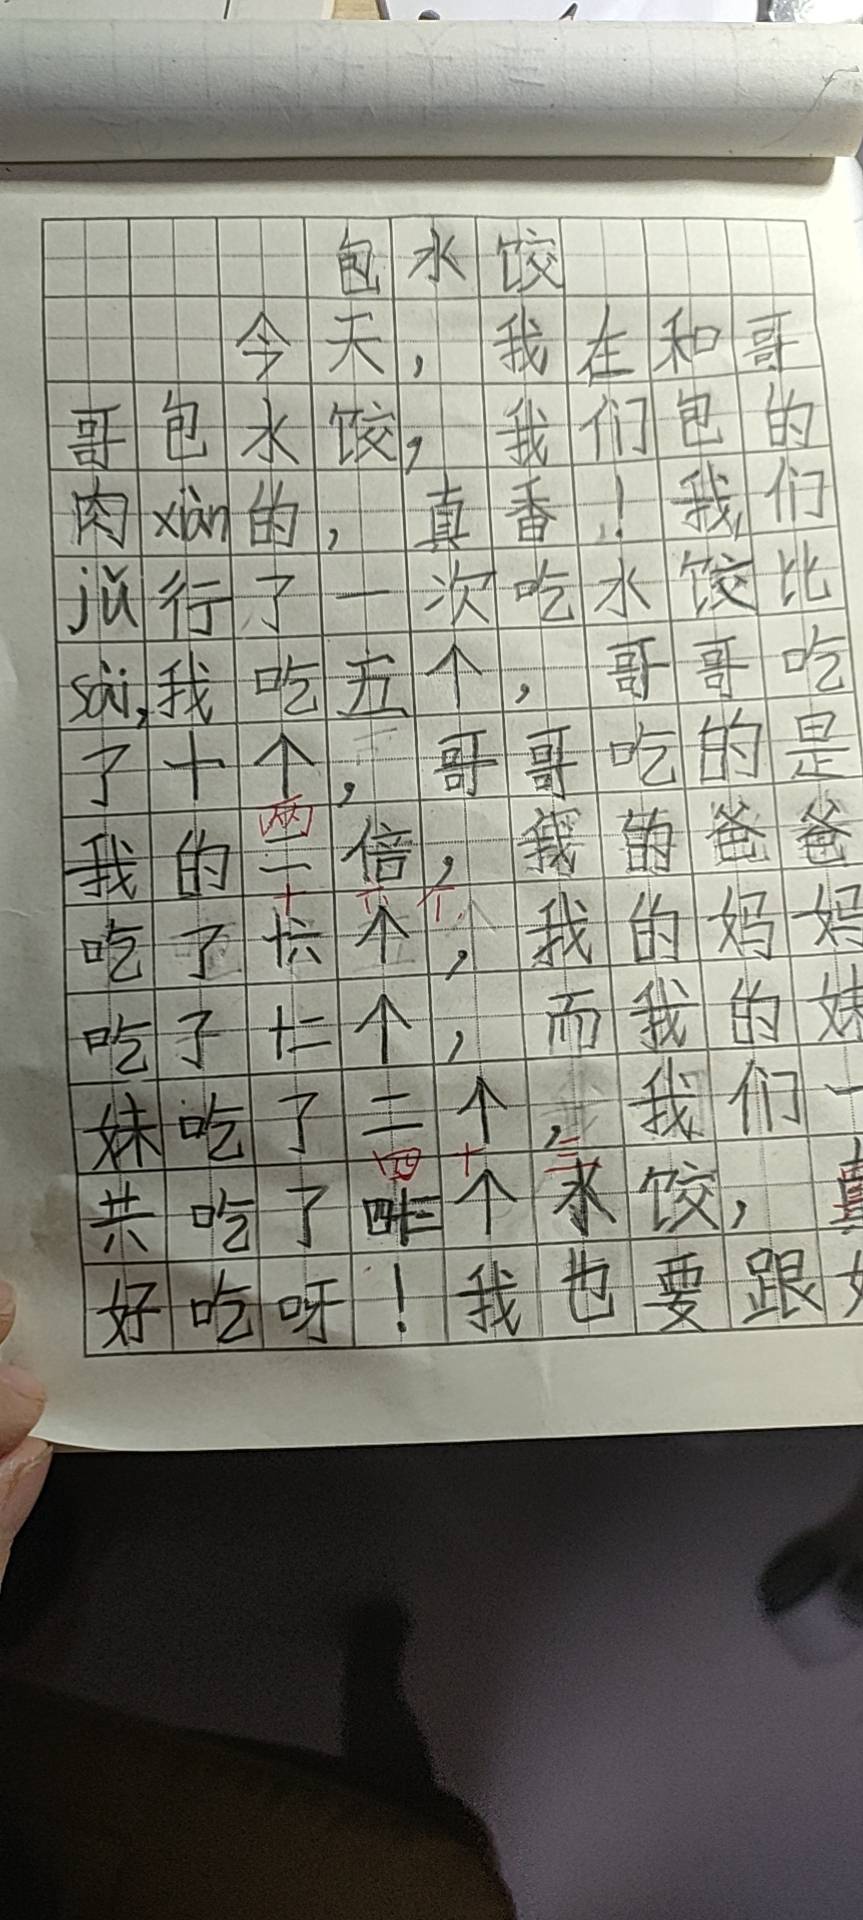 包水饺
今天，我在和哥
哥包水饺，我们包的
肉xiàn的，真香！我们
jǔ行了一次吃水饺比
sài，我吃五个，哥哥吃
了十个，哥哥吃的是
两
我的二倍，我的爸爸
十六个
吃了十六个，我的妈妈
吃了十二个，而我的妹
妹吃了二个，我们一
四十三
共吃了个水饺，真
好吃呀！我也要跟